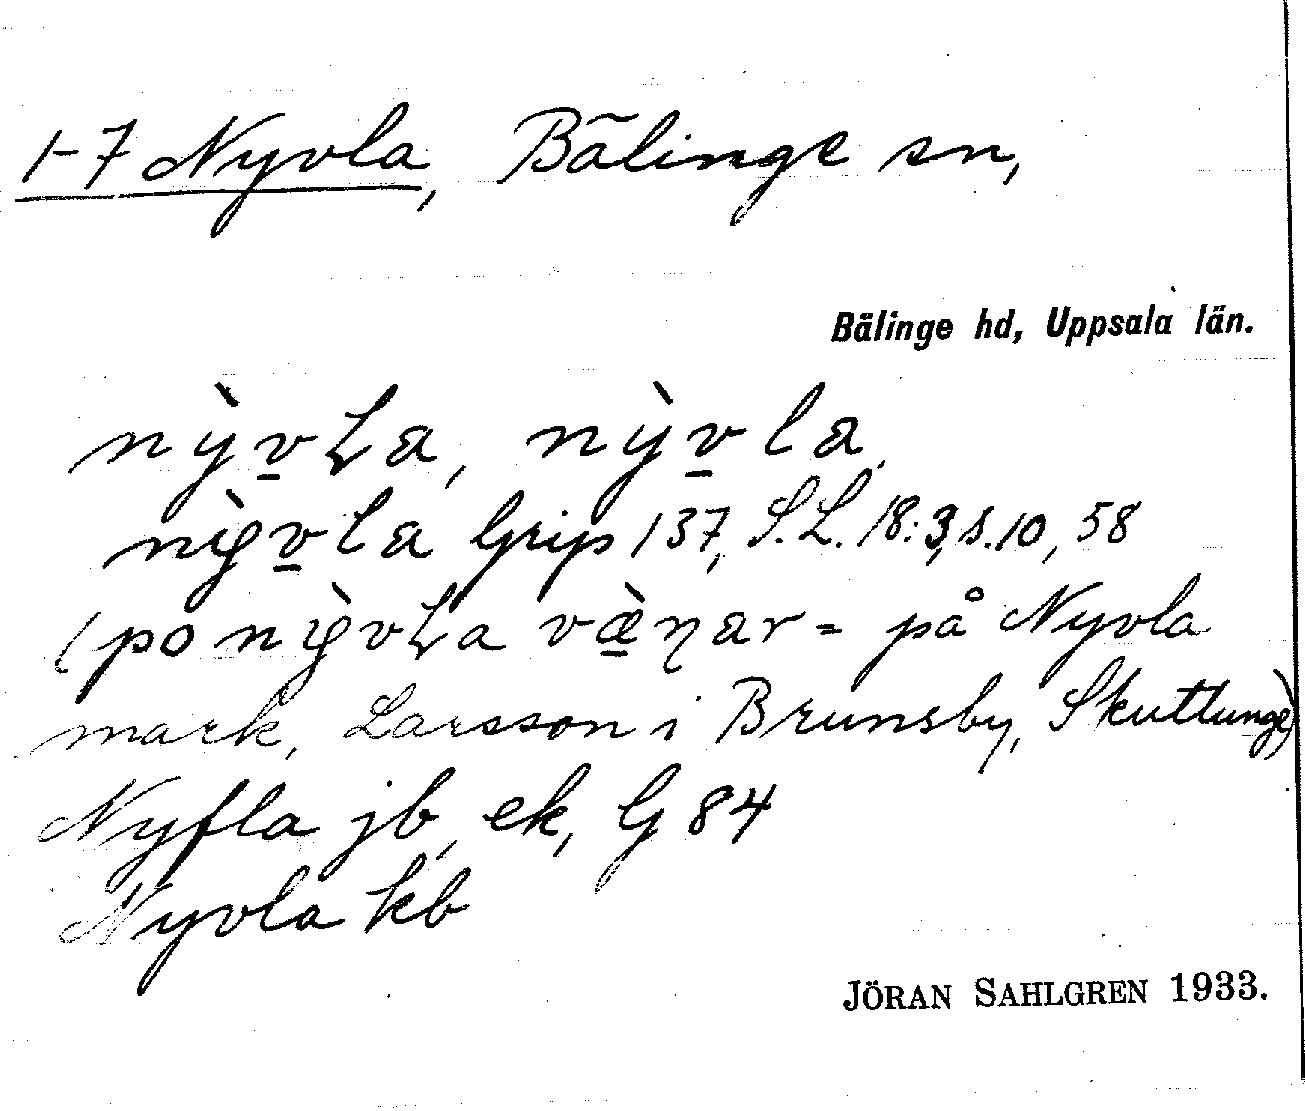 1-7 Nyvla, Bälinge sn,
Bälinge hd, Uppsala län.
nỳv̱Ła, nỳv̱la,
nỳv̱la Grip 137, S.L. 18:3, s. 10, 58
(po nỳvŁa væ̱̀ƞar = på Nyvla
mark, Larsson i Brunsby, Skuttunge)
Nyfla jb, ek, G 84
Nyvla kb
JÖRAN SAHLGREN 1933.